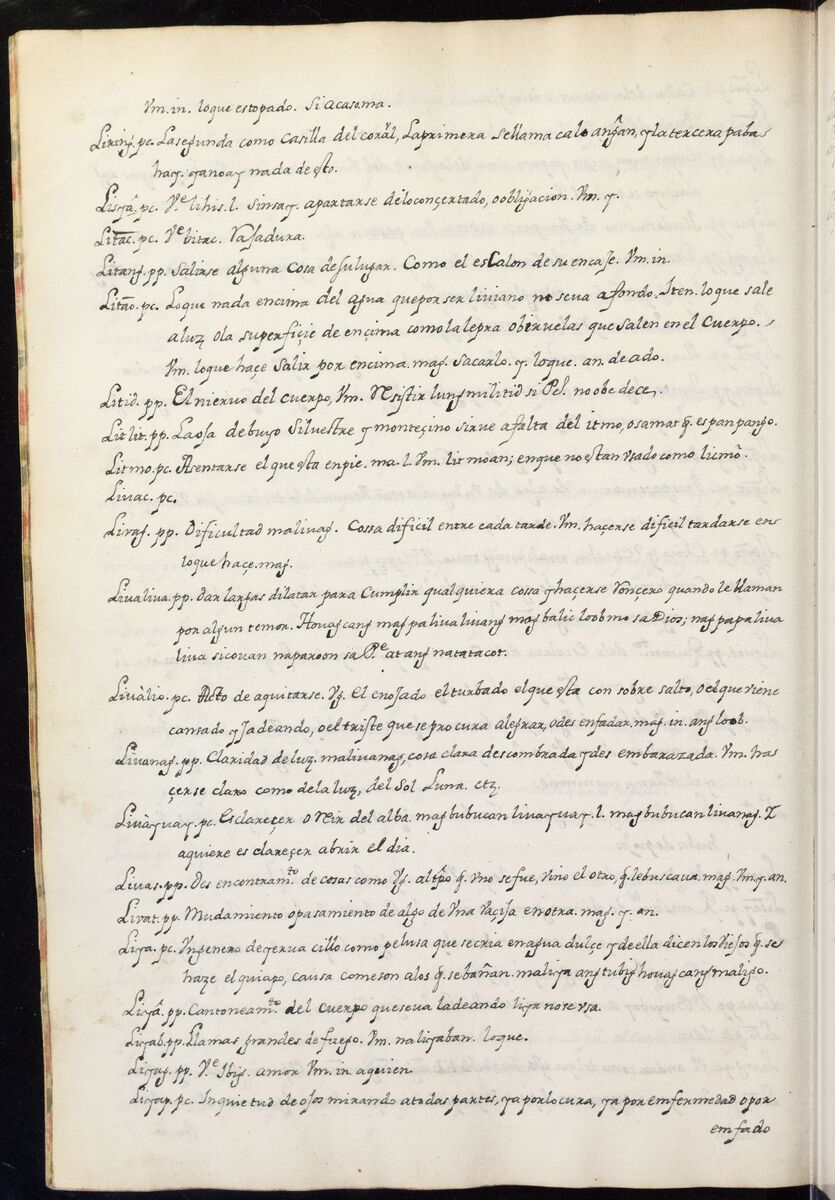 Vm. in. loque estopado. Si acasoma.
Liring. pc. La segunda como casilla del corâl, La primera sellama calo angãn, y la tercera pabas
hag. ganoay nada de esto.
Lisyâ. pc. Ve. lihis. l. sinsay. apartarse delo conçertado, o obligacion. Vm. y.
Litac. pc. Ve bitac. Rasadura.
Litang. pp. Salirse alguna cosa desulugar. Como el escalon de su encaje. Vm. in.
Litão. pc. Loque nada encima del agua que por ser liviano no seva a fondo. Iten. lo que sale
a luz ola superfiçie de ençima como la lepra o biruelas que salen en el cuerpo.
Vm. loque haçe salir por encima. mag. sacarlo. y. loque. an. de ado.
Litid. pp. El niervo del cuerpo, Vm. Resistir lung militid si Pe. no obedece.
Litlit. pp. La osa de buyo Silvestre y monteçino sirve a falta del itmo, o samat q̃. es panpango.
Litmo. pc. Asentarse el que esta enpie. ma. l. Vm. litmoan; enque no estan vsado como licmõ.
Livac. pc.
Livag. pp. Dificultad malivag. Cossa dificil entre cada tarde. Vm. haçerse dificil tardarse en
loque haçe. mag.
Livaliva. pp. dar largas dilatar para Cumplir qualquiera cossa y haçerse Ronçero quando le llaman
por algun temor. Houag cang mag paliva livang mag balic loob mo sa Dios; nag papa liva
liva si couan na paroon sa Pe. at ang natatacot.
Livàlio. pc. Acto de aquitarse. Vg. el enojado el turbado el que esta con sobre salto, o el que viene
cansado y jadeando, o el triste que se procura alegrar, o des enfadar. mag. in. ang loob.
Livanag. pp. Claridad de luz. malivanag, cosa clara descombrada y des embarazada. Vm. ha
çerse claro como dela luz, del Sol Luna. ctz.
Livàyvay. pc. Esclareçer o Reir del alba. mag bubucan livayvay. l. mag bubucan livanag. Z
aquiere es clareçer abrir el dia.
Livas. pp. des encontramto. de cosas como Vg. al tpõ q̃. vno se fue, vino el otro, q̃. le buscava. mag. Vm. y. an.
Livat. pp. Mudamiento o pasamiento de algo de Vna Vaçija en otra. mag. y. an.
Liya. pc. Vn genero de yerva cillo como pelusa que se cria en agua dulçe y de ella dicen los Viejos q̃. se
haze el quiapo, causa comeson alos q̃. se bañan. maliya ang tubig houag cang maligo.
Liyâ. pp. Cantoneamto. del cuerpo que se va ladeando liya no se vsa.
Liyab. pp. Llamas grandes de fuego. Vm. naliyaban. loque.
Liyag. pp. Ve. Ibig. amor Vm. in aquien.
Liyap. pc. Inquietud de ojos mirando a todas partes, ya por locura, ya por emfermedad o por
emfado